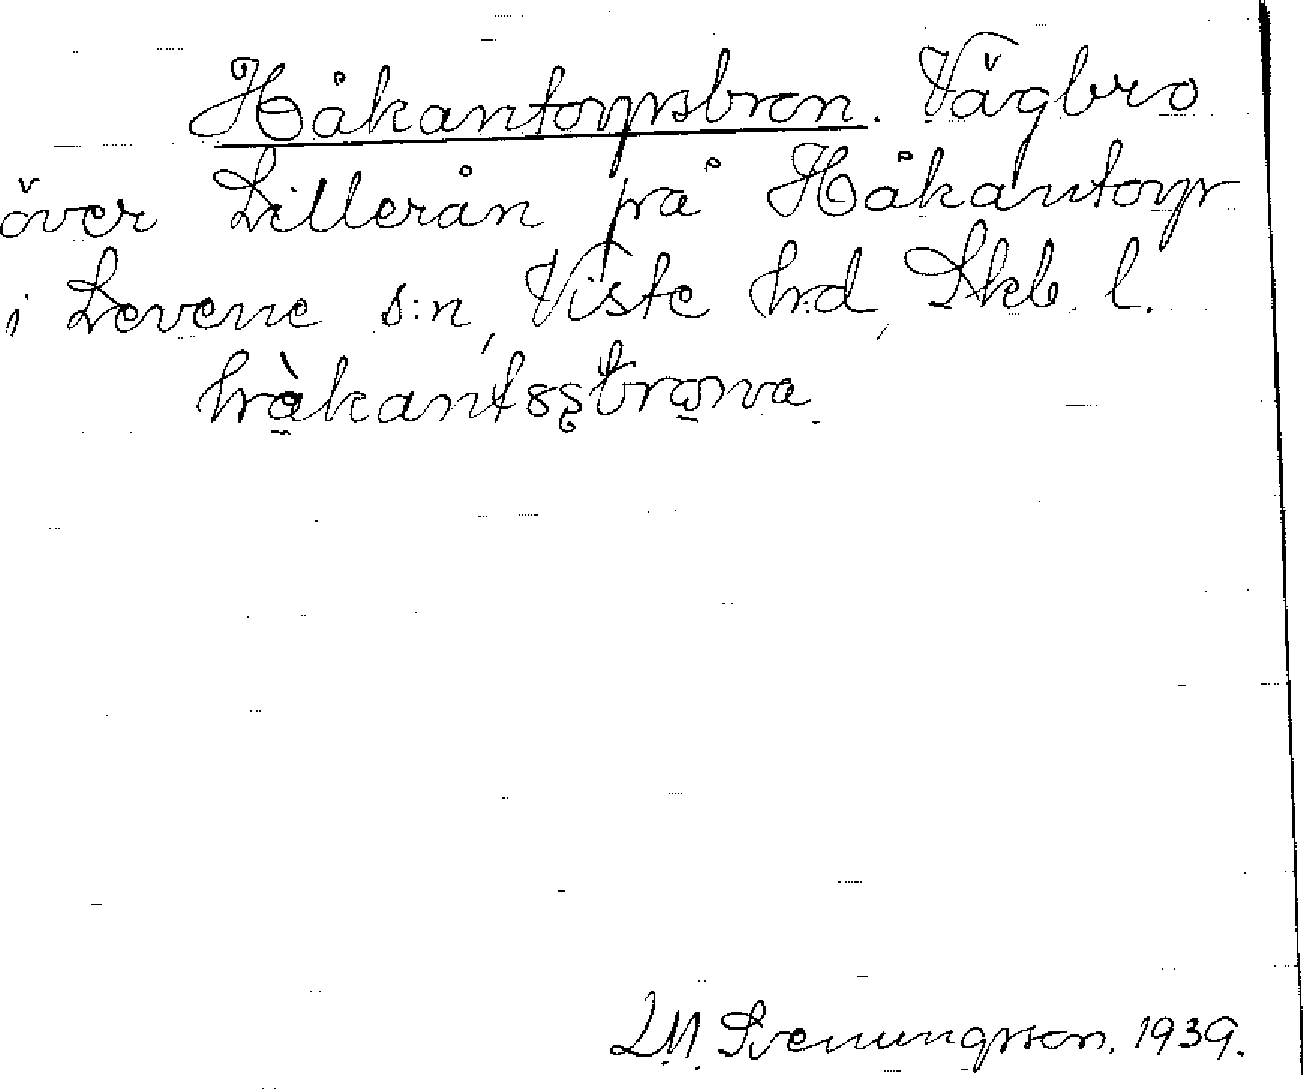 Håkantorpsbron. Vägbro
över Lillerån på Håkantorp
i Levene s:n, Viste hrd, Skb. l.
LM. Svenungsson. 1939.